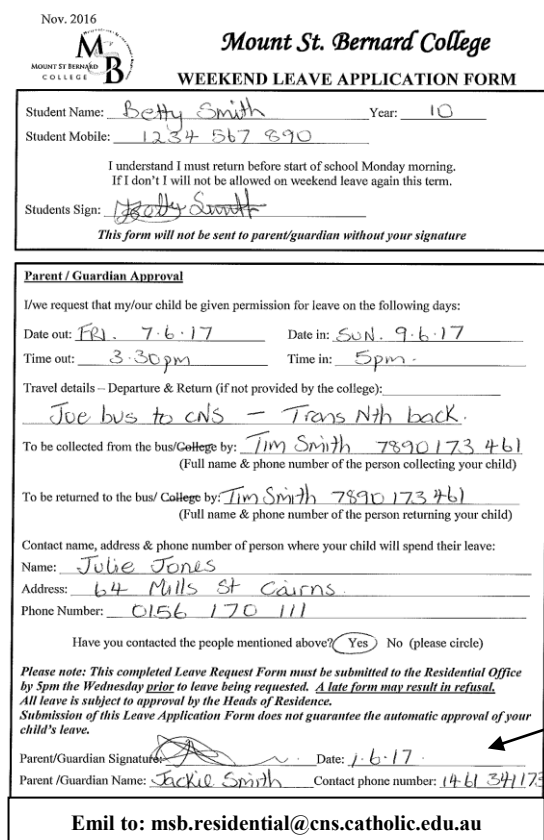 Nov. 2016
MSB
MOUNT ST BERNARD
COLLEGE
Mount St. Bernard College
WEEKEND LEAVE APPLICATION FORM
Student Name: Betty Smith Year: 10
Student Mobile: 1234 567 890
I understand I must return before start of school Monday morning.
If I don't I will not be allowed on weekend leave again this term.
Students Sign: Betty Smith
This form will not be sent to parent/guardian without your signature
Parent / Guardian Approval
I/we request that my/our child be given permission for leave on the following days:
Date out: FRI. 7.6.17 Date in: SUN. 9.6.17
Time out: 3.30pm Time in: 5pm.
Travel details – Departure & Return (if not provided by the college):
Joe bus to CNS – Trans Nth back.
To be collected from the bus/College by: Tim Smith 7890 173 461
(Full name & phone number of the person collecting your child)
To be returned to the bus/ College by: Tim Smith 7890 173 461
(Full name & phone number of the person returning your child)
Contact name, address & phone number of person where your child will spend their leave:
Name: Julie Jones
Address: 64 Mills St Cairns.
Phone Number: 0156 170 111
Have you contacted the people mentioned above? Yes No (please circle)
Please note: This completed Leave Request Form must be submitted to the Residential Office
by 5pm the Wednesday prior to leave being requested. A late form may result in refusal.
All leave is subject to approval by the Heads of Residence.
Submission of this Leave Application Form does not guarantee the automatic approval of your
child's leave.
Parent/Guardian Signature: Date: 1.6.17.
Parent /Guardian Name: Jackie Smith Contact phone number: 1461 341173
Emil to: msb.residential@cns.catholic.edu.au